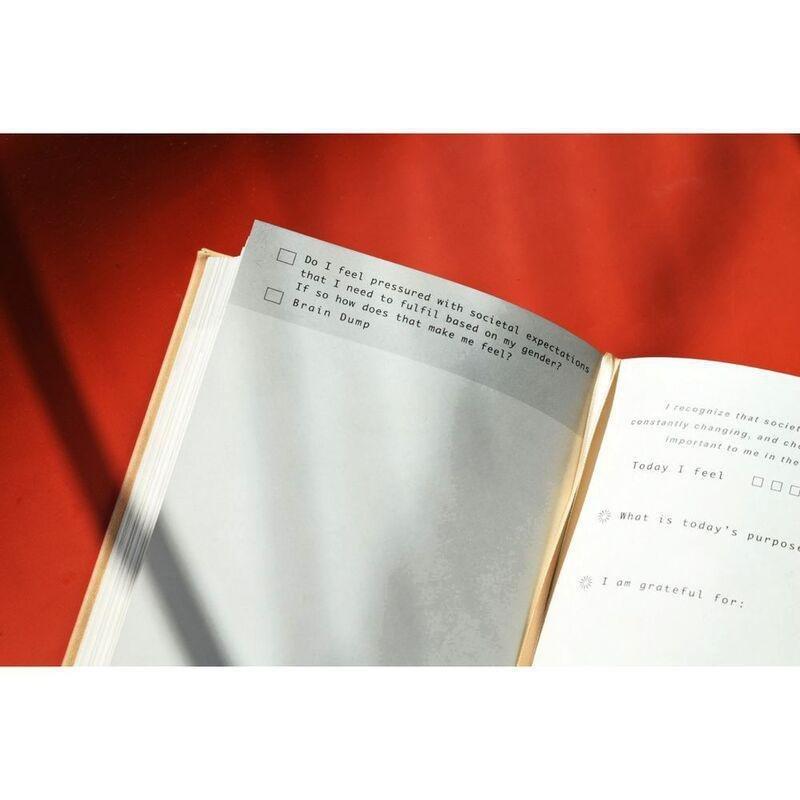 Do I feel pressured with societal expectations
that I need to fulfil based on my gender?
If so how does that make me feel?
Brain Dump
I recognize that
constantly changing, and
important to me in the
Today I feel
What is today's purpose
I am grateful for: